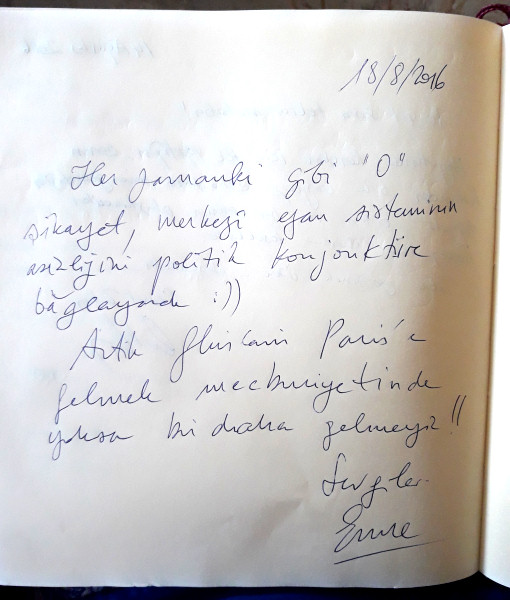 18/8/2016
Her zamanki gibi "0"
şikayet, merkezi ezan sisteminin
politik konjonktüre
bağlayarak :))
Artık Paris'e
gelmek mecburiyetinde
yoksa bi daha gelmeyiz!!
Sevgiler.
Emre